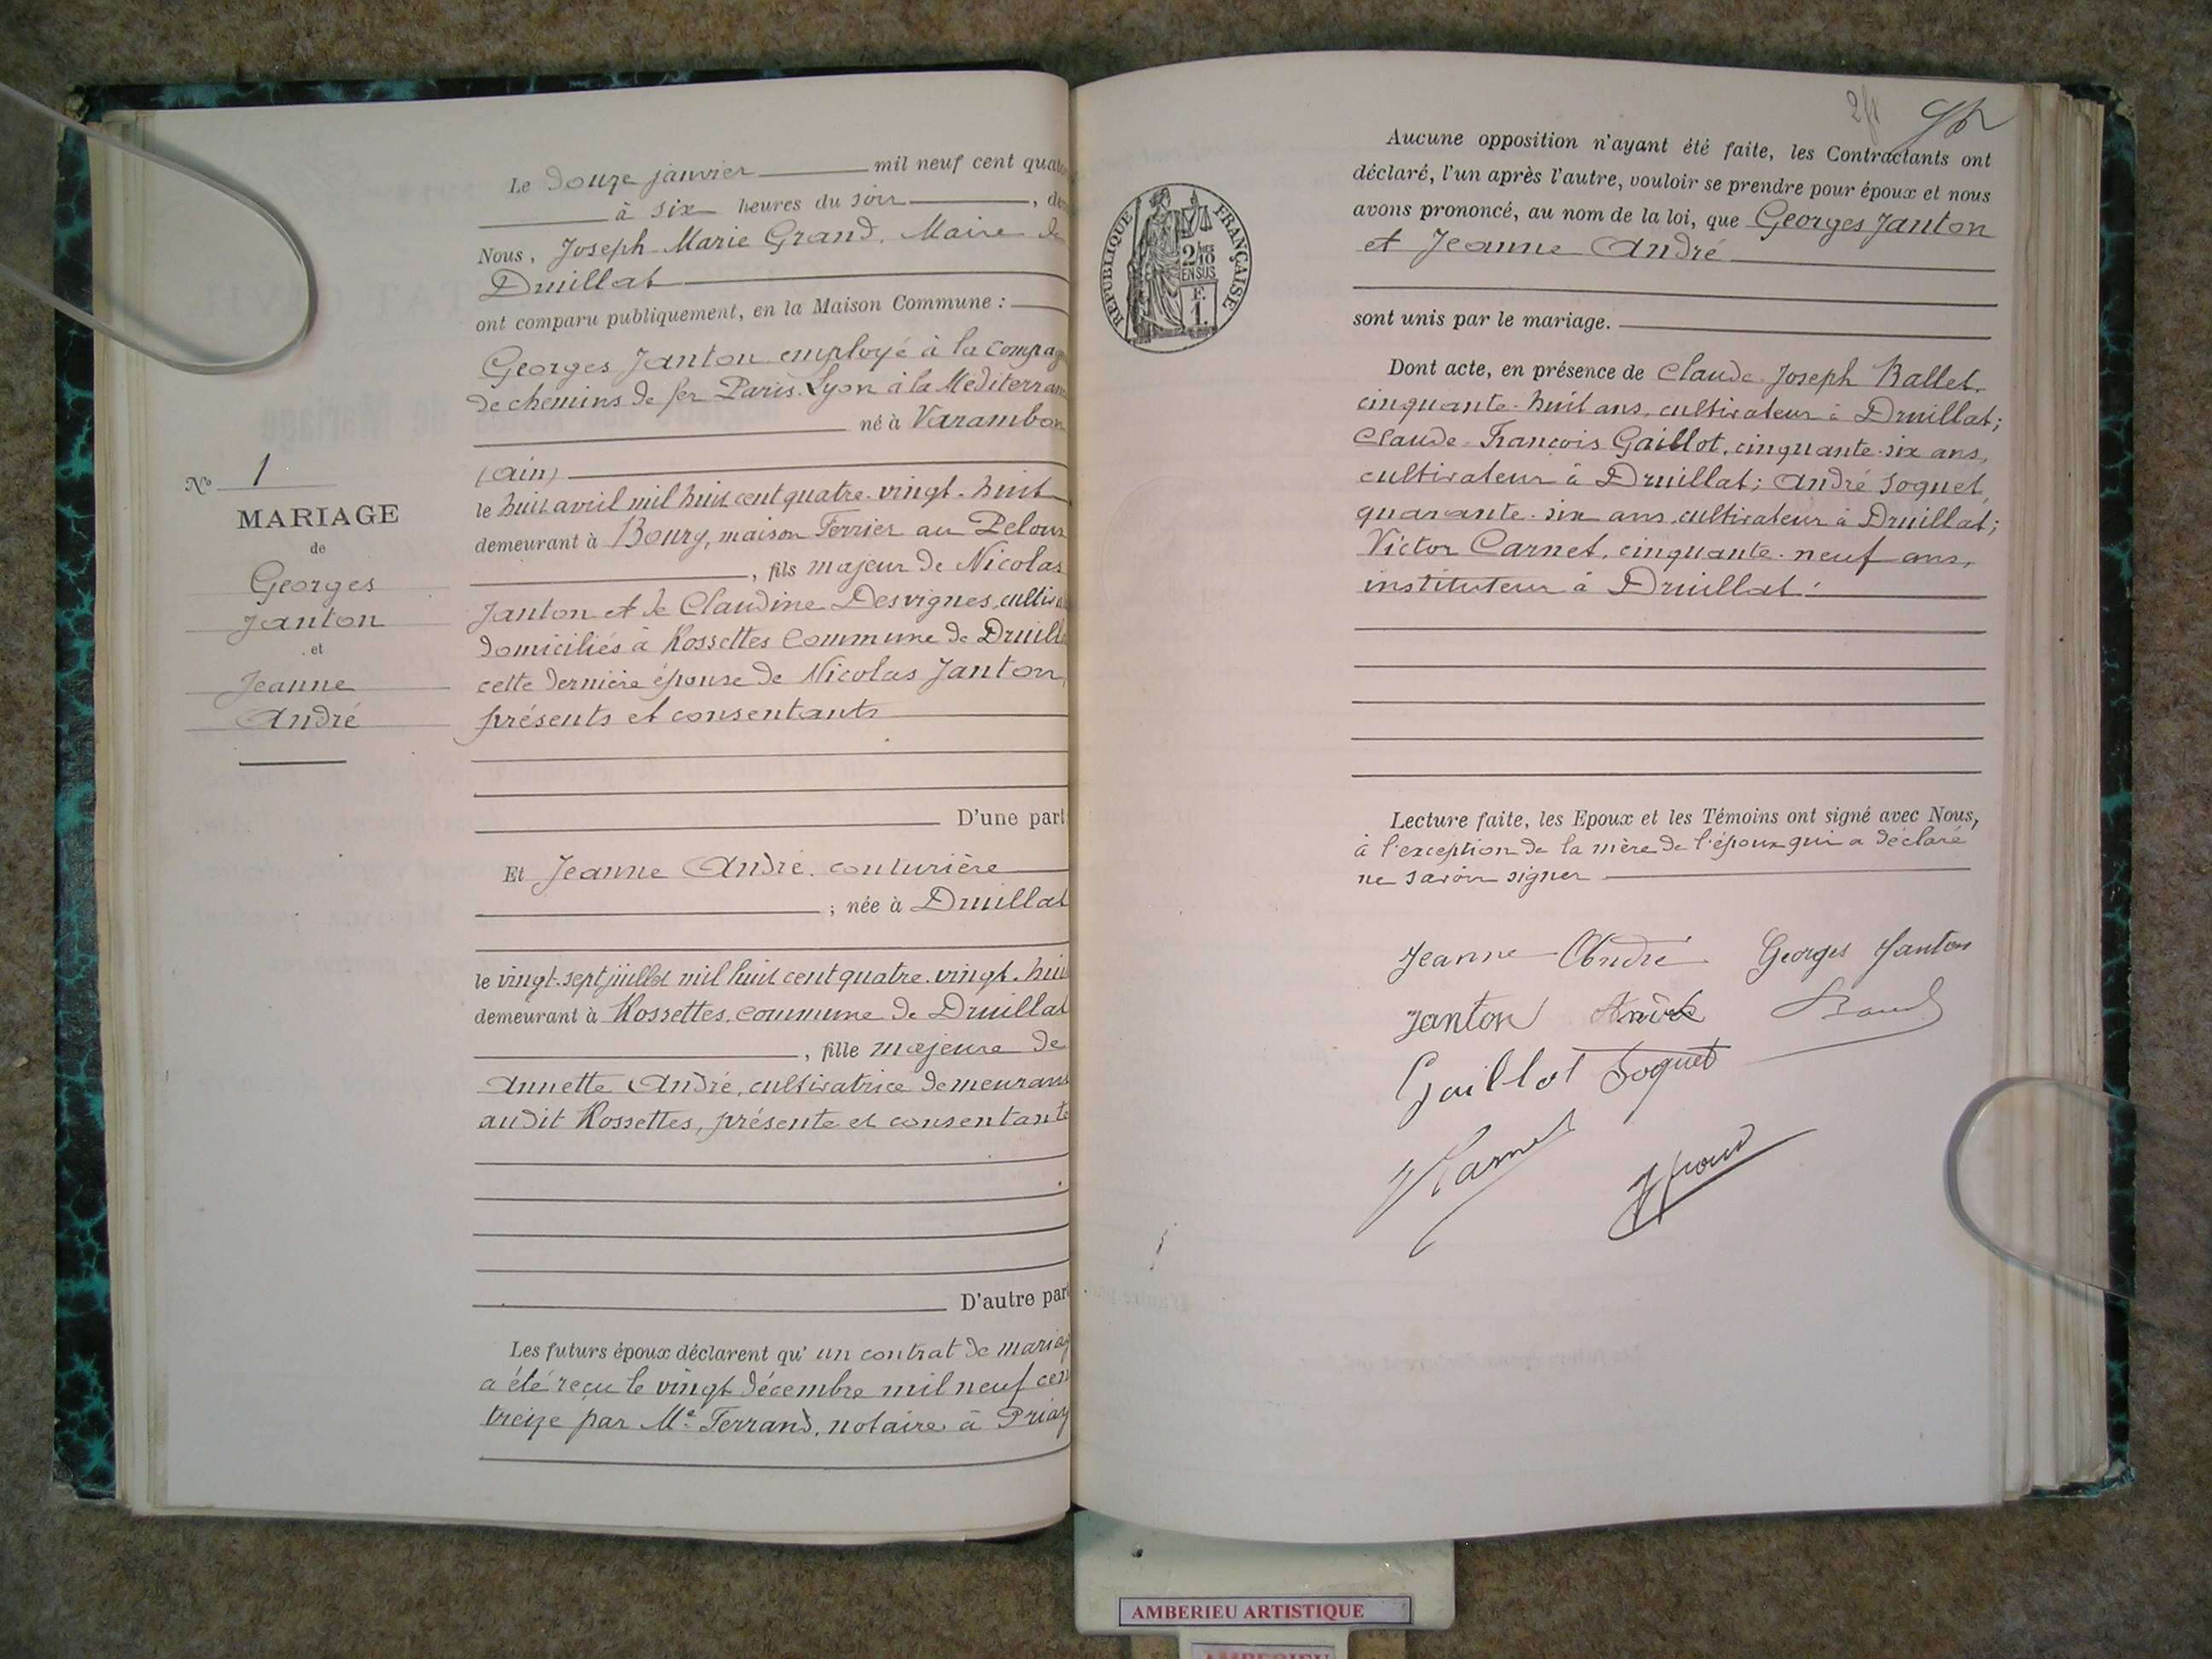 Le douze janvier mil neuf cent quato
à six heures du soir, dev
Nous, Joseph-Marie Grand, Maire de
Druillat
ont comparu publiquement, en la Maison Commune :
Georges Janton employé à la compagn
de chemins de fer Paris. Lyon à la Méditerran
né à Varambon
(Ain)
le huit avril mil huit cent quatre-vingt-huit
demeurant à Bourg, maison Ferrier au Peloux
, fils majeur de Nicolas
Janton et de Claudine Desvignes, cultiva
domiciliés à Rossettes commune de Druilla
cette dernière épouse de Nicolas Janton,
présents et consentants
D'une part
Et Jeanne André, couturière
; née à Druillat
le vingt-sept juillet mil huit cent quatre-vingt-huit
demeurant à Rossettes, commune de Druillat
, fille majeure de
Annette André, cultivatrice demeurant
audit Rossettes, présente et consentante
D'autre part
Les futurs époux déclarent qu'un contrat de mariag
a été reçu le vingt décembre mil neuf cen
treize par Me Ferrand, notaire à Priay
N° 1
MARIAGE
de
Georges
Janton
et
Jeanne
André
RÉPUBLIQUE FRANÇAISE
2/10
EN SUS
F.
1.
Aucune opposition n'ayant été faite, les Contractants ont
déclaré, l'un après l'autre, vouloir se prendre pour époux et nous
avons prononcé, au nom de la loi, que Georges Janton
et Jeanne André
sont unis par le mariage.
Dont acte, en présence de Claude-Joseph Ballet,
cinquante-huit ans, cultivateur à Druillat;
Claude-François Gaillot, cinquante-six ans,
cultivateur à Druillat; André Soquet,
quarante-six ans, cultivateur à Druillat;
Victor Carnet, cinquante-neuf ans,
instituteur à Druillat.
Lecture faite, les Epoux et les Témoins ont signé avec Nous,
à l'exception de la mère de l'époux qui a déclaré
ne savoir signer
Jeanne André Georges Janton
Janton André
Gaillot Soquet
VCarnet JGrand
AMBERIEU ARTISTIQUE
AMBERIEU